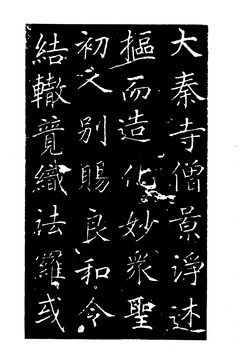 大秦寺僧景淨述
摳而造化妙眾聖
初之別賜良和令
結轍競織法羅或